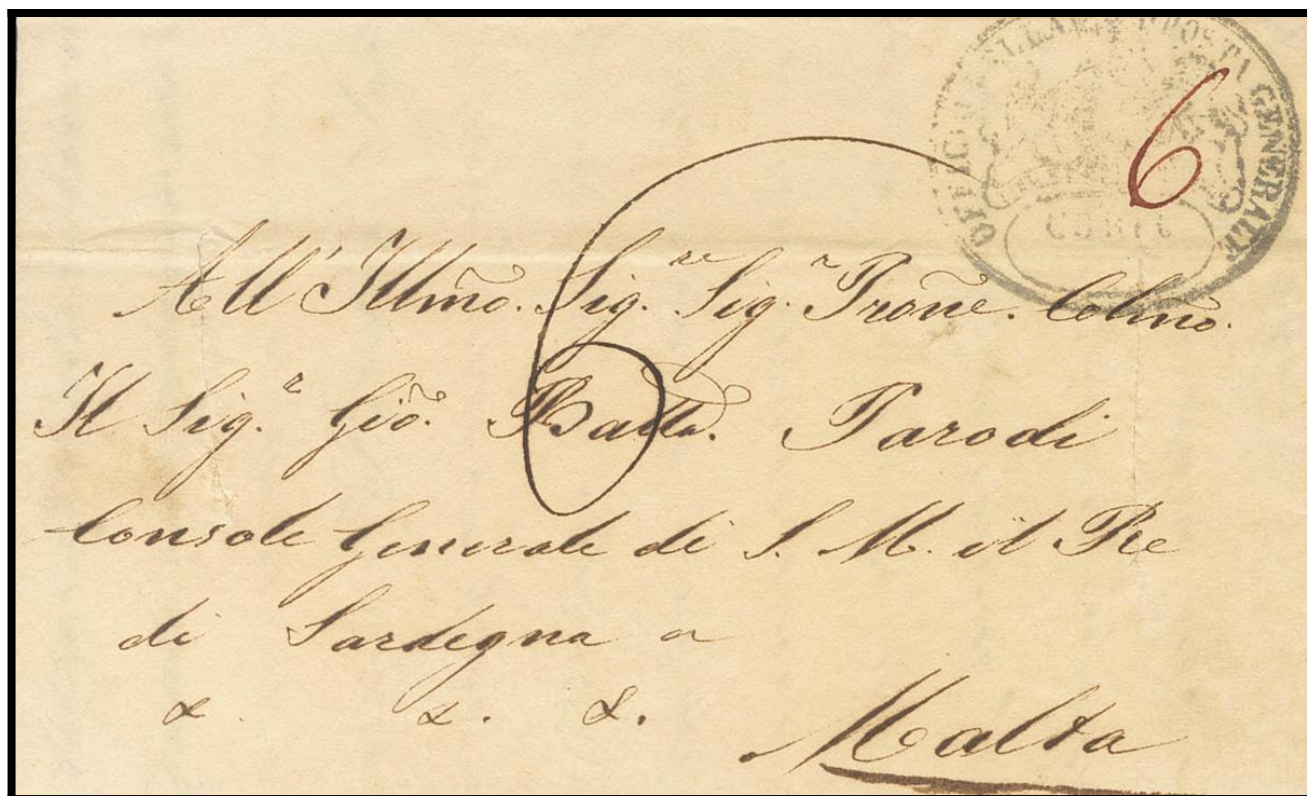 OFFICIO DELLA POSTA GENERALE
CORFU
6
6
All' Illmo. Sig.re Sig.r Prone. Colmo.
Il Sig.r Gio. Batta. Parodi
Console Generale di S. M. il Re
di Sardegna a
&. &. &.
Malta